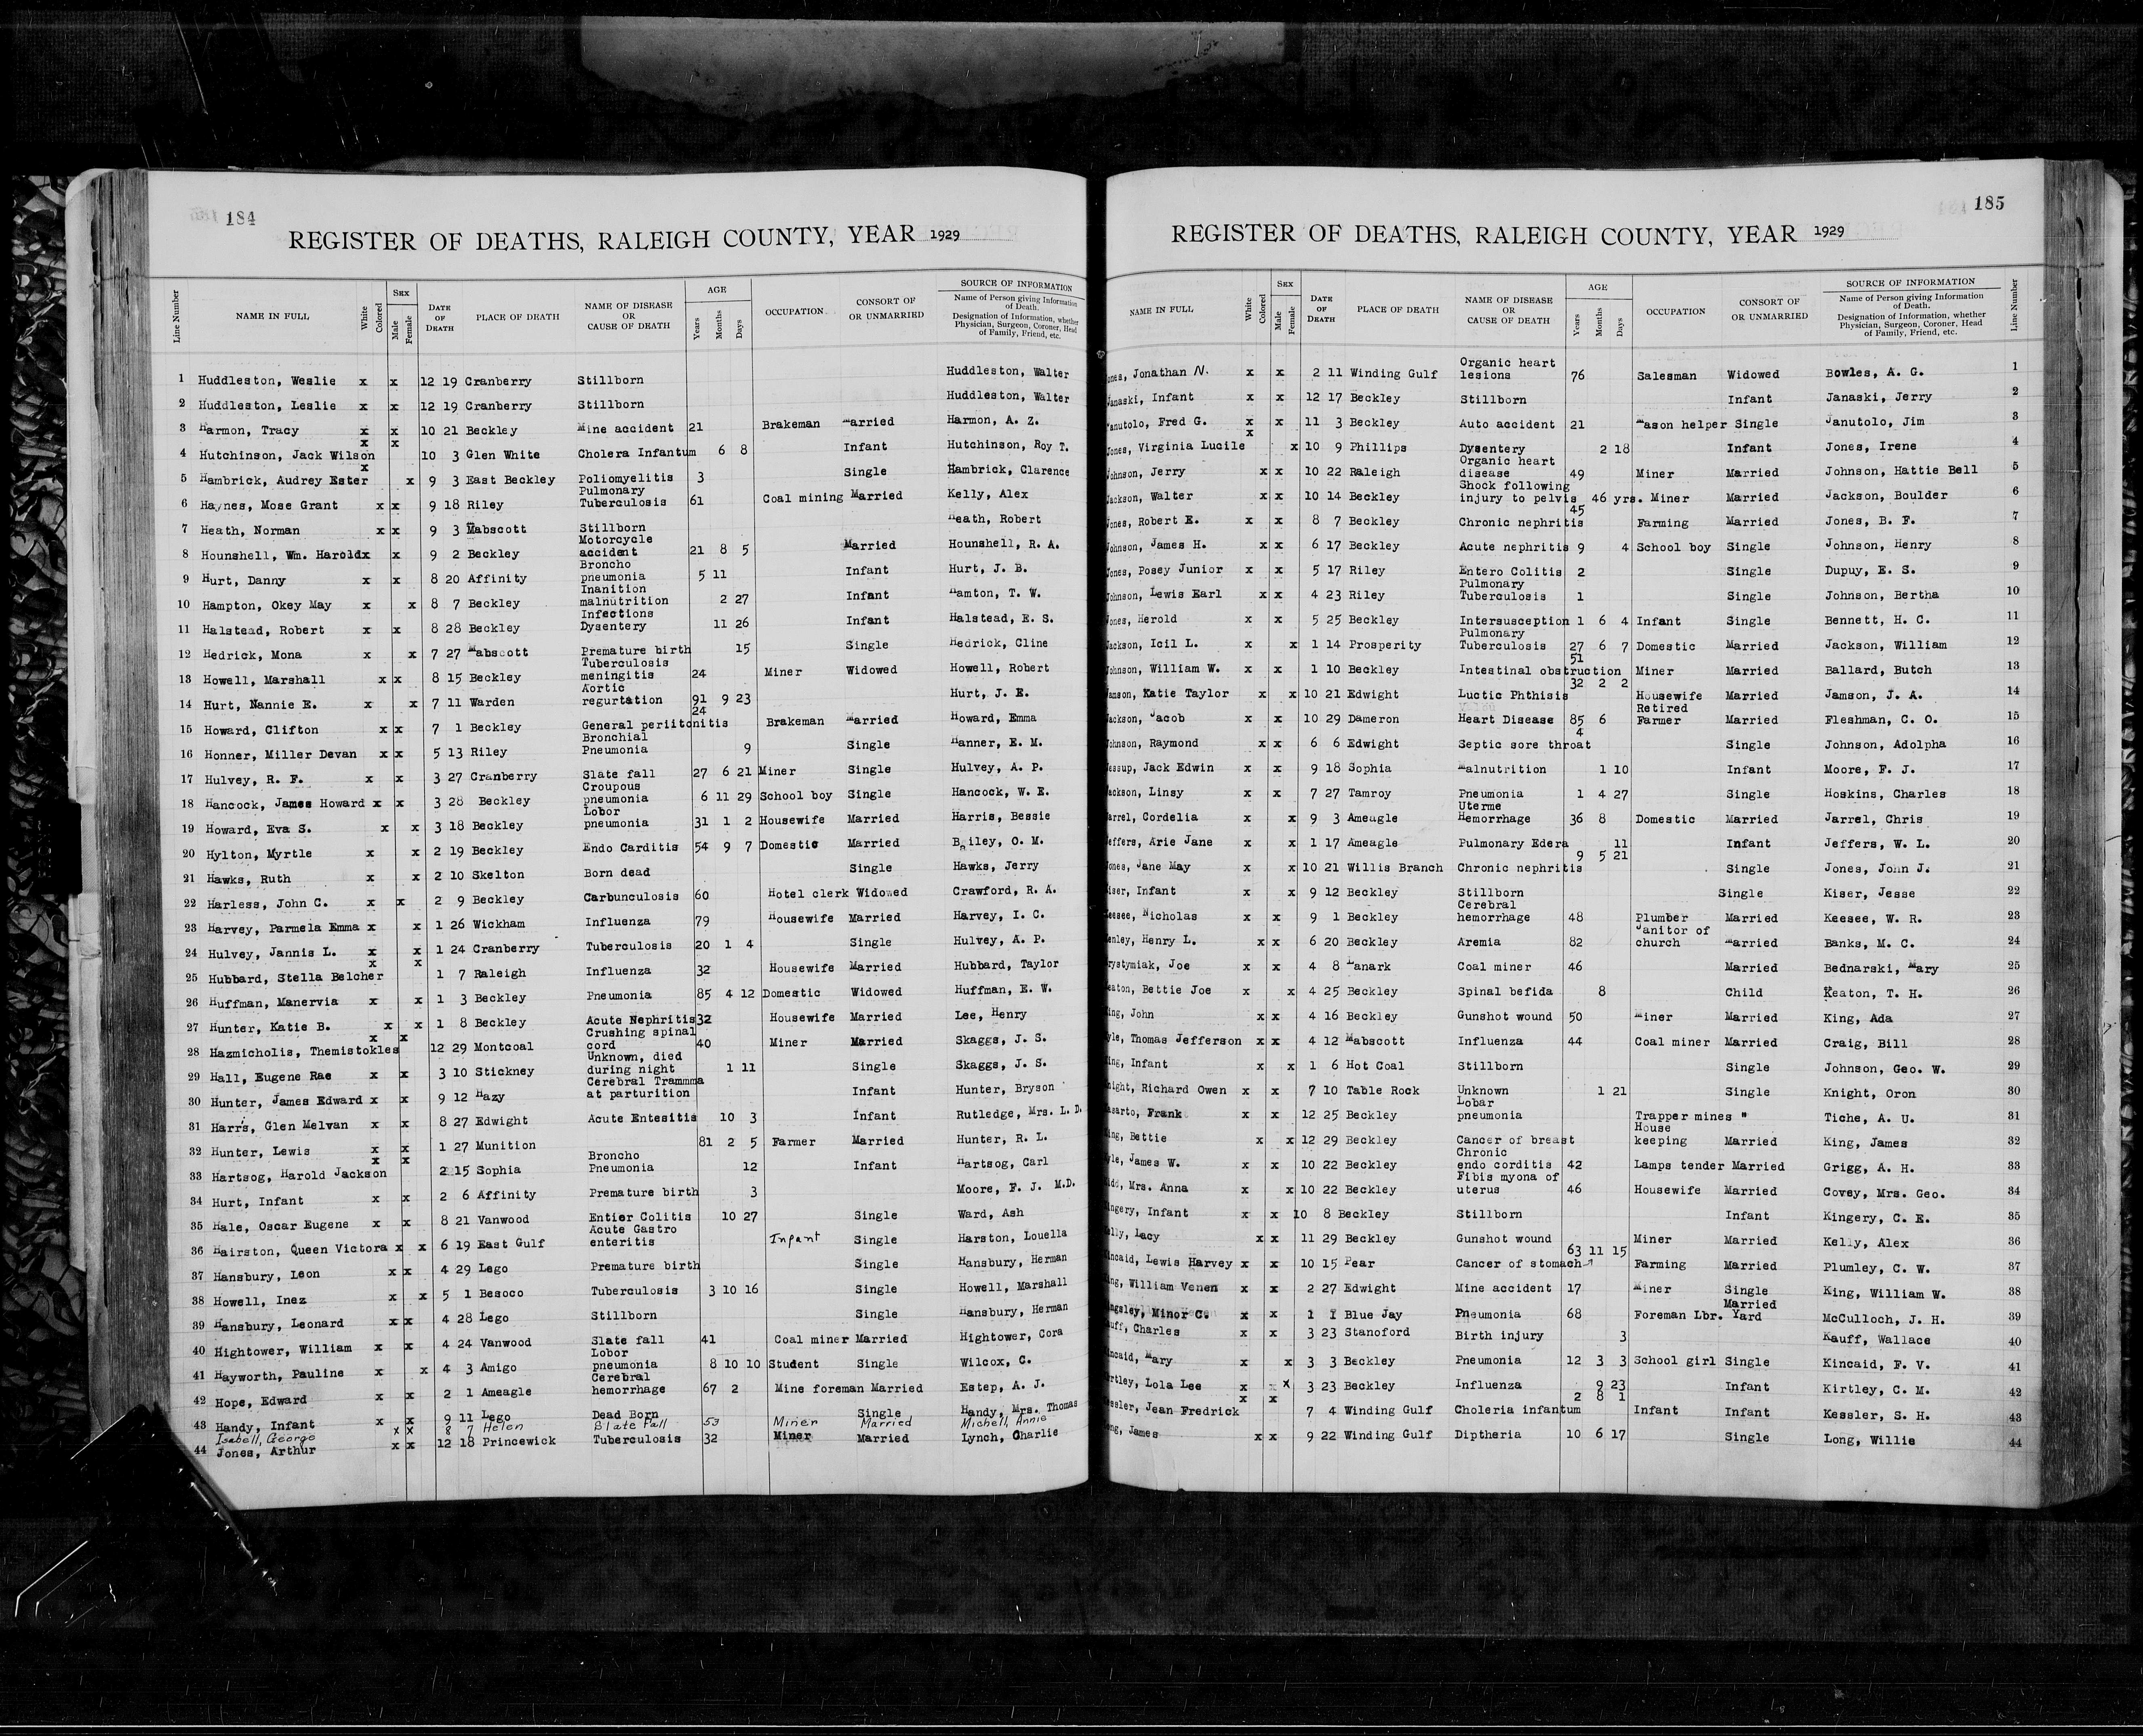 184
REGISTER OF DEATHS, RALEIGH COUNTY, YEAR 1929
Line Number NAME IN FULL White Colored SEX Male Female DATE OF DEATH PLACE OF DEATH NAME OF DISEASE OR CAUSE OF DEATH AGE Years Months Days OCCUPATION CONSORT OF OR UNMARRIED SOURCE OF INFORMATION Name of Person giving Information of Death. Designation of Information, whether Physician, Surgeon, Coroner, Head of Family, Friend, etc.
1 Huddleston, Weslie x x 12 19 Cranberry Stillborn Huddleston, Walter
2 Huddleston, Leslie x x 12 19 Cranberry Stillborn Huddleston, Walter
3 Harmon, Tracy x x 10 21 Beckley Mine accident 21 Brakeman Married Harmon, A. Z.
4 Hutchinson, Jack Wilson x x 10 3 Glen White Cholera Infantum 6 8 Infant Hutchinson, Roy T.
5 Hambrick, Audrey Ester x x 9 3 East Beckley Poliomyelitis 3 Single Hambrick, Clarence
6 Haynes, Mose Grant x x 9 18 Riley Pulmonary Tuberculosis 61 Coal mining Married Kelly, Alex
7 Heath, Norman x x 9 3 Mabscott Stillborn Heath, Robert
8 Hounshell, Wm. Harold x x 9 2 Beckley Motorcycle accident 21 8 5 Married Hounshell, R. A.
9 Hurt, Danny x x 8 20 Affinity Broncho pneumonia 5 11 Infant Hurt, J. B.
10 Hampton, Okey May x x 8 7 Beckley Inanition malnutrition 2 27 Infant Hamton, T. W.
11 Halstead, Robert x x 8 28 Beckley Infections Dysentery 11 26 Infant Halstead, E. S.
12 Hedrick, Mona x x 7 27 Mabscott Premature birth 15 Single Hedrick, Cline
13 Howell, Marshall x x 8 15 Beckley Tuberculosis meningitis 24 Miner Widowed Howell, Robert
14 Hurt, Nannie E. x x 7 11 Warden Aortic regurtation 91 9 23 Hurt, J. E.
15 Howard, Clifton x x 7 1 Beckley General periitonitis 24 Brakeman Married Howard, Emma
16 Honner, Miller Devan x x 5 13 Riley Bronchial Pneumonia 9 Single Hanner, E. M.
17 Hulvey, R. F. x x 3 27 Cranberry Slate fall 27 6 21 Miner Single Hulvey, A. P.
18 Hancock, James Howard x x 3 28 Beckley Croupous pneumonia 6 11 29 School boy Single Hancock, W. E.
19 Howard, Eva S. x x 3 18 Beckley Lobor pneumonia 31 1 2 Housewife Married Harris, Bessie
20 Hylton, Myrtle x x 2 19 Beckley Endo Carditis 54 9 7 Domestic Married Bailey, O. M.
21 Hawks, Ruth x x 2 10 Skelton Born dead Single Hawks, Jerry
22 Harless, John C. x x 2 9 Beckley Carbunculosis 60 Hotel clerk Widowed Crawford, R. A.
23 Harvey, Parmela Emma x x 1 26 Wickham Influenza 79 Housewife Married Harvey, I. C.
24 Hulvey, Jannis L. x x 1 24 Cranberry Tuberculosis 20 1 4 Single Hulvey, A. P.
25 Hubbard, Stella Belcher x x 1 7 Raleigh Influenza 32 Housewife Married Hubbard, Taylor
26 Huffman, Manervia x x 1 3 Beckley Pneumonia 85 4 12 Domestic Widowed Huffman, E. W.
27 Hunter, Katie B. x x 1 8 Beckley Acute Nephritis 32 Housewife Married Lee, Henry
28 Hazmicholis, Themistokles x x 12 29 Montcoal Crushing spinal cord 40 Miner Married Skaggs, J. S.
29 Hall, Eugene Rae x x 3 10 Stickney Unknown, died during night 1 11 Single Skaggs, J. S.
30 Hunter, James Edward x x 9 12 Hazy Cerebral Trammma at parturition Infant Hunter, Bryson
31 Harrs, Glen Melvan x x 8 27 Edwight Acute Entesitis 10 3 Infant Rutledge, Mrs. L. D.
32 Hunter, Lewis x x 1 27 Munition 81 2 5 Farmer Married Hunter, R. L.
33 Hartsog, Harold Jackson x x 2 15 Sophia Broncho Pneumonia 12 Infant Hartsog, Carl
34 Hurt, Infant x x 2 6 Affinity Premature birth 3 Moore, F. J. M.D.
35 Hale, Oscar Eugene x x 8 21 Vanwood Entier Colitis 10 27 Single Ward, Ash
36 Hairston, Queen Victora x x 6 19 East Gulf Acute Gastro enteritis Infant Single Harston, Louella
37 Hansbury, Leon x x 4 29 Lego Premature birth Single Hansbury, Herman
38 Howell, Inez x x 5 1 Besoco Tuberculosis 3 10 16 Single Howell, Marshall
39 Hansbury, Leonard x x 4 28 Lego Stillborn Single Hansbury, Herman
40 Hightower, William x x 4 24 Vanwood Slate fall 41 Coal miner Married Hightower, Cora
41 Hayworth, Pauline x x 4 3 Amigo Lobor pneumonia 8 10 10 Student Single Wilcox, C.
42 Hope, Edward x x 2 1 Ameagle Cerebral hemorrhage 67 2 Mine foreman Married Estep, A. J.
43 Handy, Infant x x 9 11 Lego Dead Born Single Handy, Mrs. Thomas
Isabell, George x x 8 7 Helen Slate Fall 53 Miner Married Michell, Annie
44 Jones, Arthur x x 12 18 Princewick Tuberculosis 32 Miner Married Lynch, Charlie
185
REGISTER OF DEATHS, RALEIGH COUNTY, YEAR 1929
NAME IN FULL White Colored SEX Male Female DATE OF DEATH PLACE OF DEATH NAME OF DISEASE OR CAUSE OF DEATH AGE Years Months Days OCCUPATION CONSORT OF OR UNMARRIED SOURCE OF INFORMATION Name of Person giving Information of Death. Designation of Information, whether Physician, Surgeon, Coroner, Head of Family, Friend, etc. Line Number
ones, Jonathan N. x x 2 11 Winding Gulf Organic heart lesions 76 Salesman Widowed Bowles, A. G. 1
Janaski, Infant x x 12 17 Beckley Stillborn Infant Janaski, Jerry 2
anutolo, Fred G. x x 11 3 Beckley Auto accident 21 Mason helper Single Janutolo, Jim 3
Jones, Virginia Lucile x x 10 9 Phillips Dysentery 2 18 Infant Jones, Irene 4
Johnson, Jerry x x 10 22 Raleigh Organic heart disease 49 Miner Married Johnson, Hattie Bell 5
Jackson, Walter x x 10 14 Beckley Shock following injury to pelvis 46 yrs. Miner Married Jackson, Boulder 6
Jones, Robert E. x x 8 7 Beckley Chronic nephritis 45 Farming Married Jones, B. F. 7
Johnson, James H. x x 6 17 Beckley Acute nephritis 9 4 School boy Single Johnson, Henry 8
Jones, Posey Junior x x 5 17 Riley Entero Colitis 2 Single Dupuy, E. S. 9
Johnson, Lewis Earl x x 4 23 Riley Pulmonary Tuberculosis 1 Single Johnson, Bertha 10
Jones, Herold x x 5 25 Beckley Intersusception 1 6 4 Infant Single Bennett, H. C. 11
Jackson, Icil L. x x 1 14 Prosperity Pulmonary Tuberculosis 27 6 7 Domestic Married Jackson, William 12
Johnson, William W. x x 1 10 Beckley Intestinal obstruction 51 Miner Married Ballard, Butch 13
Jamson, Katie Taylor x x 10 21 Edwight Luctic Phthisis 32 2 2 Housewife Married Jamson, J. A. 14
Jackson, Jacob x x 10 29 Dameron Heart Disease 85 6 Retired Farmer Married Fleshman, C. O. 15
Johnson, Raymond x x 6 6 Edwight Septic sore throat 4 Single Johnson, Adolpha 16
Jessup, Jack Edwin x x 9 18 Sophia Malnutrition 1 10 Infant Moore, F. J. 17
Jackson, Linsy x x 7 27 Tamroy Pneumonia 1 4 27 Single Hoskins, Charles 18
arrel, Cordelia x x 9 3 Ameagle Uterme Hemorrhage 36 8 Domestic Married Jarrel, Chris 19
Jeffers, Arie Jane x x 1 17 Ameagle Pulmonary Edera 11 Infant Jeffers, W. L. 20
Jones, Jane May x x 10 21 Willis Branch Chronic nephritis 9 5 21 Single Jones, John J. 21
iser, Infant x x 9 12 Beckley Stillborn Single Kiser, Jesse 22
eesee, Nicholas x x 9 1 Beckley Cerebral hemorrhage 48 Plumber Married Keesee, W. R. 23
enley, Henry L. x x 6 20 Beckley Aremia 82 Janitor of church Married Banks, M. C. 24
rystymiak, Joe x x 4 8 Lanark Coal miner 46 Married Bednarski, Mary 25
eaton, Bettie Joe x x 4 25 Beckley Spinal befida 8 Child Keaton, T. H. 26
ing, John x x 4 16 Beckley Gunshot wound 50 Miner Married King, Ada 27
yle, Thomas Jefferson x x 4 12 Mabscott Influenza 44 Coal miner Married Craig, Bill 28
ing, Infant x x 1 6 Hot Coal Stillborn Single Johnson, Geo. W. 29
night, Richard Owen x x 7 10 Table Rock Unknown 1 21 Single Knight, Oron 30
asarto, Frank x x 12 25 Beckley Lobar pneumonia Trapper mines " Tiche, A. U. 31
ing, Bettie x x 12 29 Beckley Cancer of breast House keeping Married King, James 32
yle, James W. x x 10 22 Beckley Chronic endo corditis 42 Lamps tender Married Grigg, A. H. 33
idd, Mrs. Anna x x 10 22 Beckley Fibis myona of uterus 46 Housewife Married Covey, Mrs. Geo. 34
ingery, Infant x x 10 8 Beckley Stillborn Infant Kingery, C. E. 35
elly, Lacy x x 11 29 Beckley Gunshot wound Miner Married Kelly, Alex 36
incaid, Lewis Harvey x x 10 15 Pear Cancer of stomach 63 11 15 Farming Married Plumley, C. W. 37
ing, William Venen x x 2 27 Edwight Mine accident 17 Miner Single King, William W. 38
ngsley, Minor C. x x 1 1 Blue Jay Pneumonia 68 Foreman Lbr. Yard Married McCulloch, J. H. 39
auff, Charles x x 3 23 Stanoford Birth injury 3 Kauff, Wallace 40
incaid, Mary x x 3 3 Beckley Pneumonia 12 3 3 School girl Single Kincaid, F. V. 41
irtley, Lola Lee x x 3 23 Beckley Influenza 9 23 Infant Kirtley, C. M. 42
essler, Jean Fredrick x x 7 4 Winding Gulf Choleria infantum 2 8 1 Infant Infant Kessler, S. H. 43
ong, James x x 9 22 Winding Gulf Diptheria 10 6 17 Single Long, Willie 44